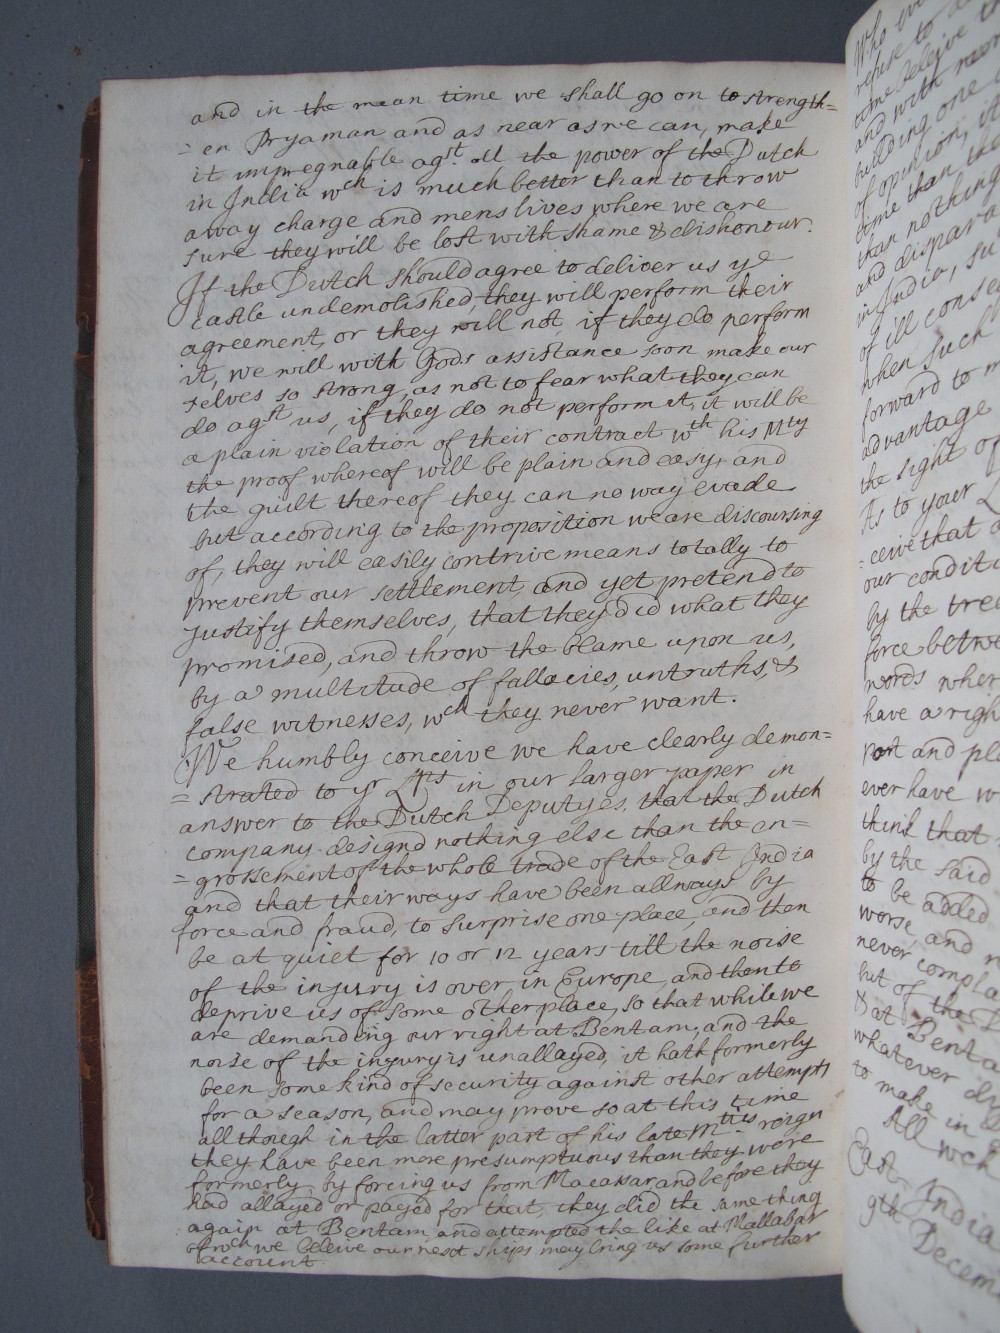 and in the mean time we shall go on to strength=
=en Pryaman and as near as we can, make
it impregnable agst. all the power of the Dutch
in India wch is much better than to throw
away charge and mens lives where we are
sure they will be lost with shame & dishonour.
If the Dutch should agree to deliver us ye
castle undemolished, they will perform their
agreement, or they will not, if they do perform
it, we will with Gods assistance soon make our
selves so strong, as not to fear what they can
do agst us, if they do not perform it, it will be
a plain violation of their contract wth his Mty
the proof whereof will be plain and easy, and
the guilt thereof they can no way evade
but according to the proposition we are discoursing
of, they will easily contrive means totally to
prevent our settlement, and yet pretend to
justify themselves, that they did what they
promised, and throw the blame upon us,
by a multitude of fallacies, untruths, &
false witnesses, wch they never want.
We humbly conceive we have clearly demon=
=strated to yr Lps in our larger paper in
answer to the Dutch Deputyes, that the Dutch
company designd nothing else than the en=
=grossement of the whole trade of the East India
and that their ways have been allways by
force and fraud, to surprise one place, and then
be at quiet for 10 or 12 years till the noise
of the injury is over, in Europe, and then to
deprive us of some other place, so that while we
are demanding our right at Bentam, and the
noise of the injury is unallayed, it hath formerly
been some kind of security against other attempts
for a season, and may prove so at this time
all though in the latter part of his late Mties reign
they have been more presumptuous than they were
formerly, by forcing us from Macassar and before they
had allayed or payed for that, they did the same thing
again at Bentam, and attempted the like at Mallabar
of wch we beleive our next ships may bring us some further
account.
Who
refuse to
some beleive th
and with
building one
of opinion,
time than the
than nothing
and
in India, su
of ill conse
when such
forward to m
advantage
the sight of
As to your L
=ceive that
our conditi
by the trea
force betwe
words wher
have a righ
port and pla
ever have w
think that
by the said
to be added
worse, and n
never compla
but of the D
& at Benta
whatever
to make in
All wch
East India
9th Decem